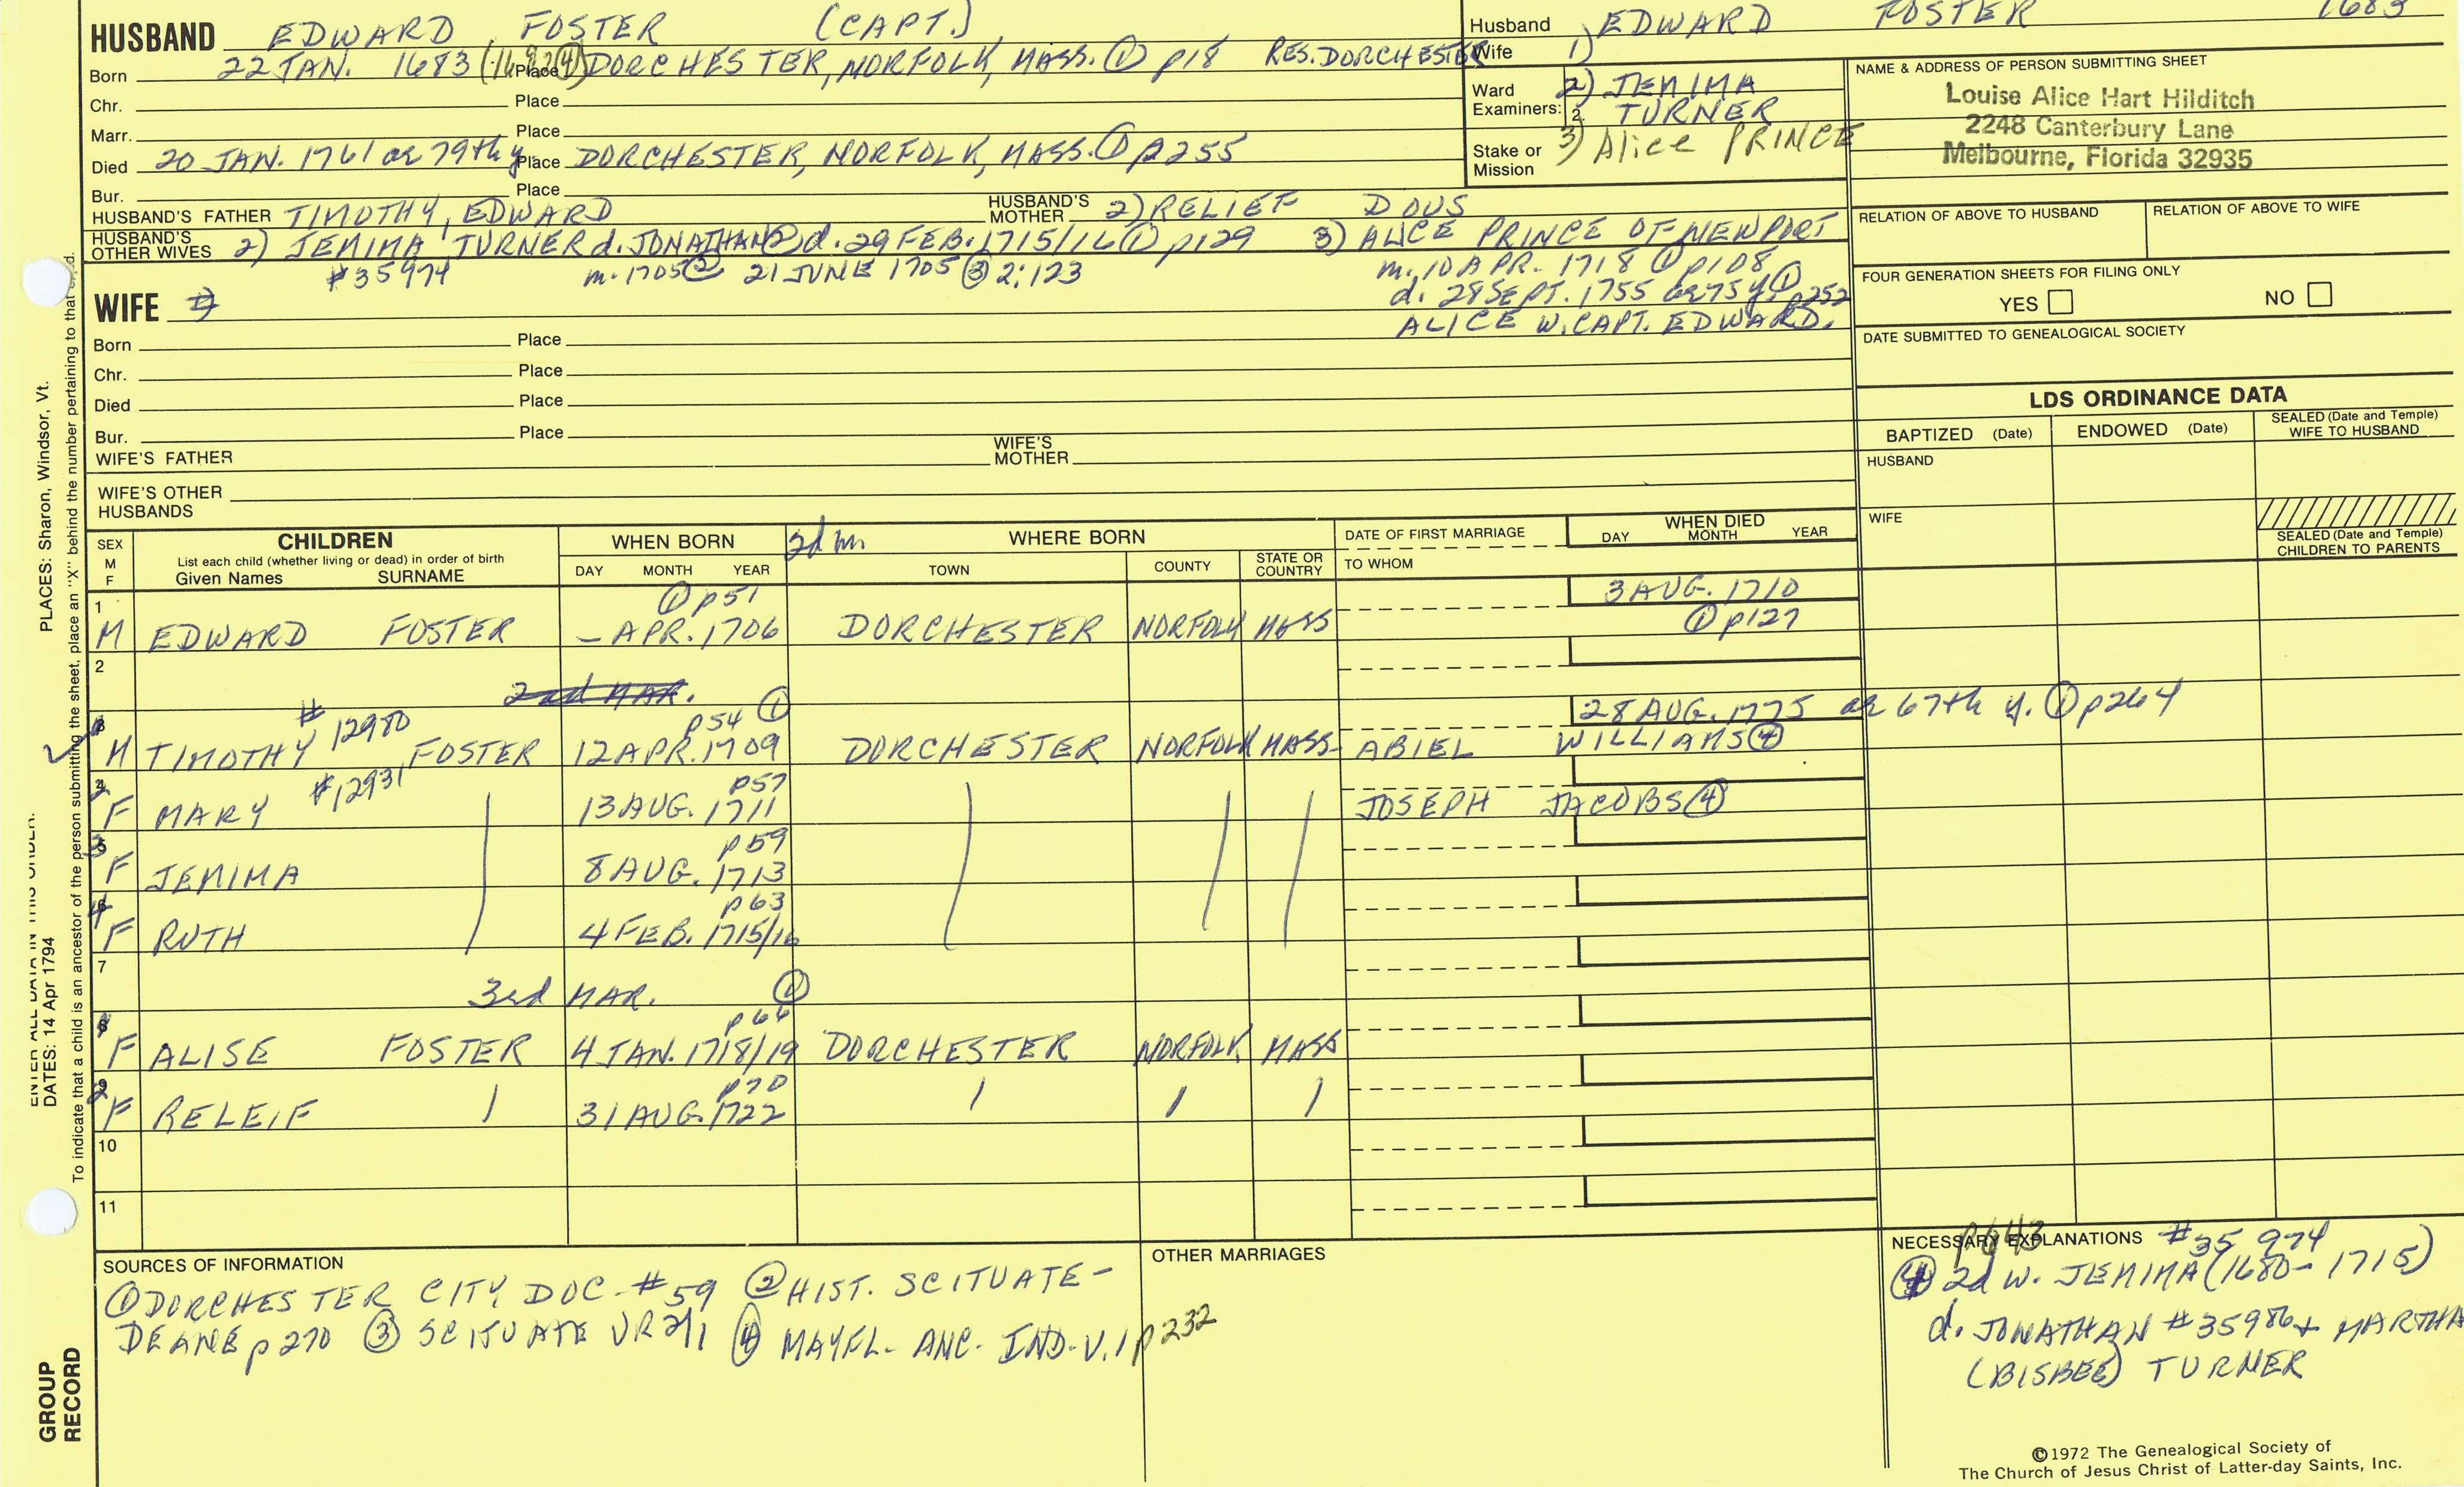 HUSBAND EDWARD FOSTER (CAPT.)
Born 22 JAN. 1683 (1682④) Place DORCHESTER, NORFOLK, MASS. ① p18 RES. DORCHESTER
Chr. Place
Marr. Place
Died 20 JAN. 1761 ae 79th y Place DORCHESTER, NORFOLK, MASS. ① p255
Bur. Place
HUSBAND'S FATHER TIMOTHY, EDWARD HUSBAND'S MOTHER 2) RELIEF DOUS
HUSBAND'S OTHER WIVES 2) JEMIMA TURNER d. JONATHAN② d. 29 FEB. 1715/16 ① p129 3) ALICE PRINCE OF NEWPORT
#35974 m. 1705② 21 JUNE 1705 ③ 2:123 m. 10 APR. 1718 ① p108
d. 28 SEPT. 1755 ae 75 y ① p252
ALICE W. CAPT. EDWARD.
Husband EDWARD FOSTER 1683
Wife 1)
Ward Examiners: 2) JEMIMA
2. TURNER
Stake or Mission 3) Alice PRINCE
NAME & ADDRESS OF PERSON SUBMITTING SHEET
Louise Alice Hart Hilditch
2248 Canterbury Lane
Melbourne, Florida 32935
RELATION OF ABOVE TO HUSBAND RELATION OF ABOVE TO WIFE
FOUR GENERATION SHEETS FOR FILING ONLY
YES NO
DATE SUBMITTED TO GENEALOGICAL SOCIETY
WIFE
Born Place
Chr. Place
Died Place
Bur. Place
WIFE'S FATHER WIFE'S MOTHER
WIFE'S OTHER HUSBANDS
LDS ORDINANCE DATA
BAPTIZED (Date) ENDOWED (Date) SEALED (Date and Temple) WIFE TO HUSBAND
HUSBAND
WIFE
SEALED (Date and Temple) CHILDREN TO PARENTS
SEX M F CHILDREN List each child (whether living or dead) in order of birth Given Names SURNAME
WHEN BORN DAY MONTH YEAR
2d m
WHERE BORN TOWN COUNTY STATE OR COUNTRY
DATE OF FIRST MARRIAGE TO WHOM
WHEN DIED DAY MONTH YEAR
1 ① p51 3 AUG. 1710
M EDWARD FOSTER – APR. 1706 DORCHESTER NORFOLK MASS ① p127
2
2nd MAR.
#12980 p54 ① 28 AUG. 1775 ae 67th y. ① p264
M TIMOTHY FOSTER 12 APR. 1709 DORCHESTER NORFOLK MASS- ABIEL WILLIAMS④
#12931 p57
2 F MARY 13 AUG. 1711 JOSEPH JACOBS④
p59
3 F JEMIMA 8 AUG. 1713
p63
4 F RUTH 4 FEB. 1715/16
7
3rd MAR. ①
p66
F ALISE FOSTER 4 JAN. 1718/19 DORCHESTER NORFOLK MASS
p70
2 F RELEIF 31 AUG. 1722
10
11
SOURCES OF INFORMATION
①DORCHESTER CITY DOC. #59 ②HIST. SCITUATE-
DEANE p270 ③ SCITUATE VR 2/1 ④ MAYFL- ANC- IND-V.1 p232
OTHER MARRIAGES
NECESSARY EXPLANATIONS p643 #35974
④ 2d W. JEMIMA (1680-1715)
d. JONATHAN #35986 + MARTHA
(BISBEE) TURNER
©1972 The Genealogical Society of
The Church of Jesus Christ of Latter-day Saints, Inc.
PLACES: Sharon, Windsor, Vt.
To indicate that a child is an ancestor of the person submitting the sheet, place an "X" behind the number pertaining to that
ENTER ALL DATA IN THIS ORDER:
DATES: 14 Apr 1794
GROUP
RECORD